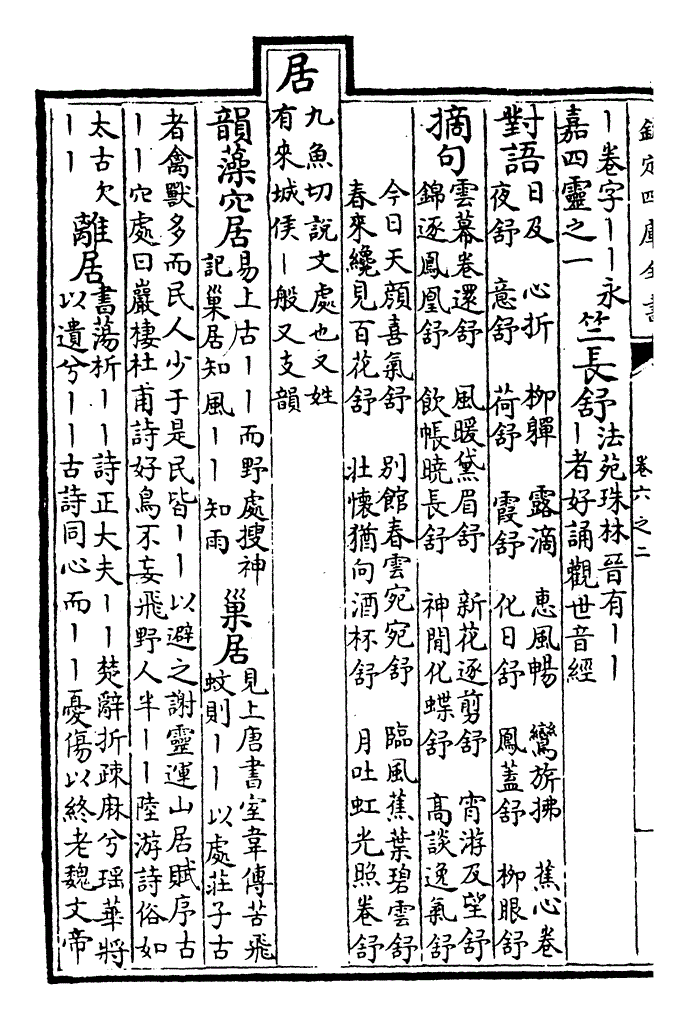 欽定四庫全書
卷六之二
丨卷字丨丨永
嘉四靈之一
竺長舒
法苑珠林晉有丨丨
丨者好誦觀世音經
對語
日及 心折 柳嚲 露滴 惠風暢 鸞旂拂 蕉心卷
夜舒 意舒 荷舒 霞舒 化日舒 鳳蓋舒 柳眼舒
摘句
雲幕卷還舒 風暖黛眉舒 新花逐剪舒 宵游及望舒
錦逐鳳凰舒 飲帳曉長舒 神閒化蝶舒 高談逸氣舒
今日天顔喜氣舒 別館春雲宛宛舒 臨風蕉葉碧雲舒
春來纔見百花舒 壯懷猶向酒杯舒 月吐虹光照卷舒
居
九魚切說文處也又姓
有來城侯丨般又支韻
韻藻
穴居
易上古丨丨而野處搜神
記巢居知風丨丨知雨
巢居
見上唐書室韋傳苦飛
蚊則丨丨以處莊子古
者禽獸多而民人少于是民皆丨丨以避之謝靈運山居賦序古
丨丨穴處曰巖棲杜甫詩好鳥不妄飛野人半丨丨陸游詩俗如
太古欠
丨丨
離居
書蕩析丨丨詩正大夫丨丨楚辭折疎麻兮瑶華將
以遺兮丨丨古詩同心而丨丨憂傷以終老魏文帝